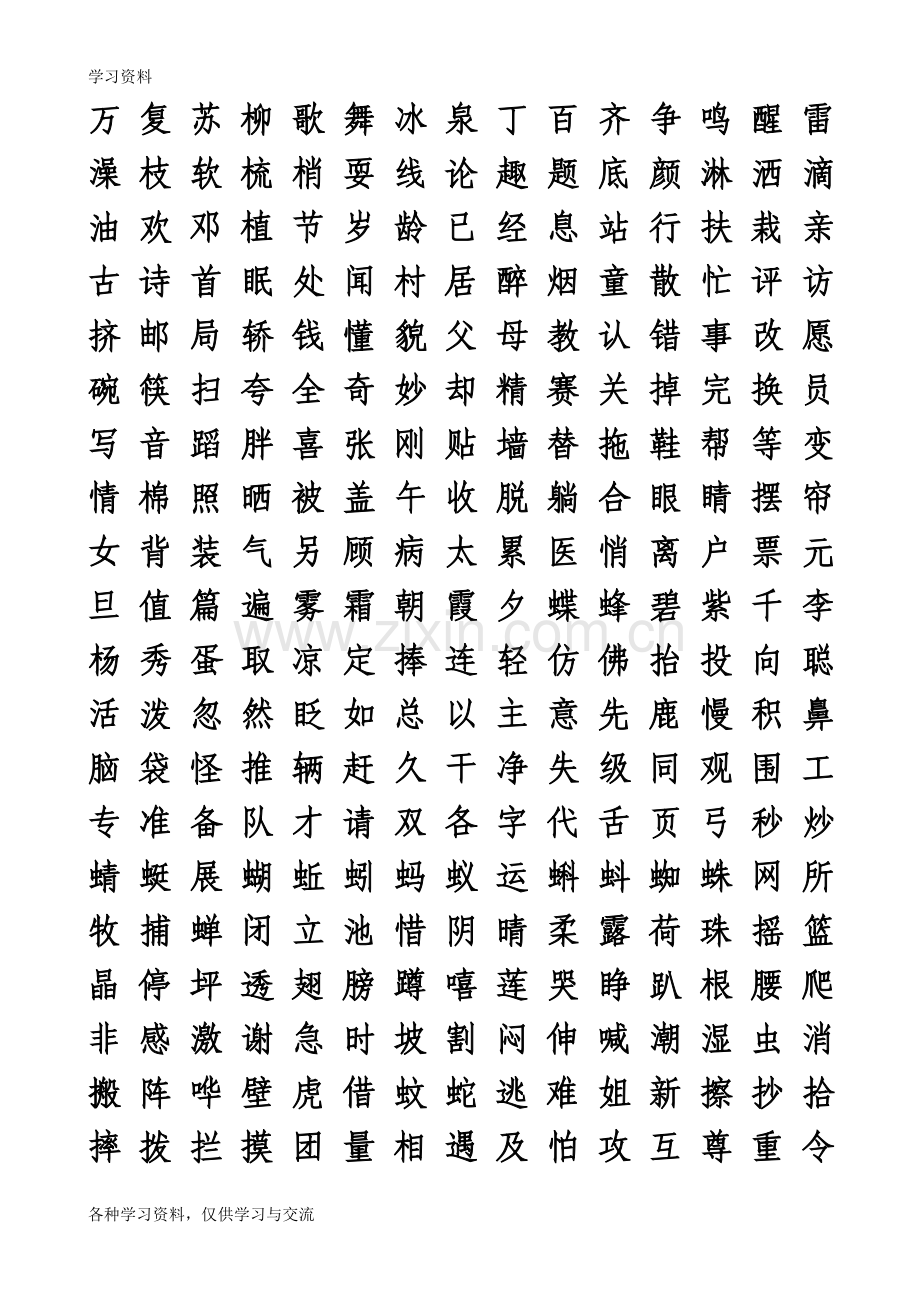 学习资料
万 复 苏 柳 歌 舞 冰 泉 丁 百 齐 争 鸣 醒 雷
澡 枝 软 梳 梢 耍 线 论 趣 题 底 颜 淋 洒 滴
油 欢 邓 植 节 岁 龄 已 经 息 站 行 扶 栽 亲
古 诗 首 眠 处 闻 村 居 醉 烟 童 散 忙 评 访
挤 邮 局 轿 钱 懂 貌 父 母 教 认 错 事 改 愿
碗 筷 扫 夸 全 奇 妙 却 精 赛 关 掉 完 换 员
写 音 蹈 胖 喜 张 刚 贴 墙 替 拖 鞋 帮 等 变
情 棉 照 晒 被 盖 午 收 脱 躺 合 眼 睛 摆 帘
女 背 装 气 另 顾 病 太 累 医 悄 离 户 票 元
旦 值 篇 遍 雾 霜 朝 霞 夕 蝶 蜂 碧 紫 千 李
www.zixin.com.cn
杨 秀 蛋 取 凉 定 捧 连 轻 仿 佛 抬 投 向 聪
活 泼 忽 然 眨 如 总 以 主 意 先 鹿 慢 积 鼻
脑 袋 怪 推 辆 赶 久 干 净 失 级 同 观 围 工
专 准 备 队 才 请 双 各 字 代 舌 页 弓 秒 炒
蜻 蜓 展 蝴 蚯 蚓 蚂 蚁 运 蝌 蚪 蜘 蛛 网 所
牧 捕 蝉 闭 立 池 惜 阴 晴 柔 露 荷 珠 摇 篮
晶 停 坪 透 翅 膀 蹲 嘻 莲 哭 睁 趴 根 腰 爬
非 感 激 谢 急 时 坡 割 闷 伸 喊 潮 湿 虫 消
搬 阵 哗 壁 虎 借 蚊 蛇 逃 难 姐 新 擦 抄 拾
摔 拨 拦 摸 团 量 相 遇 及 怕 攻 互 尊 重 令
各种学习资料，仅供学习与交流